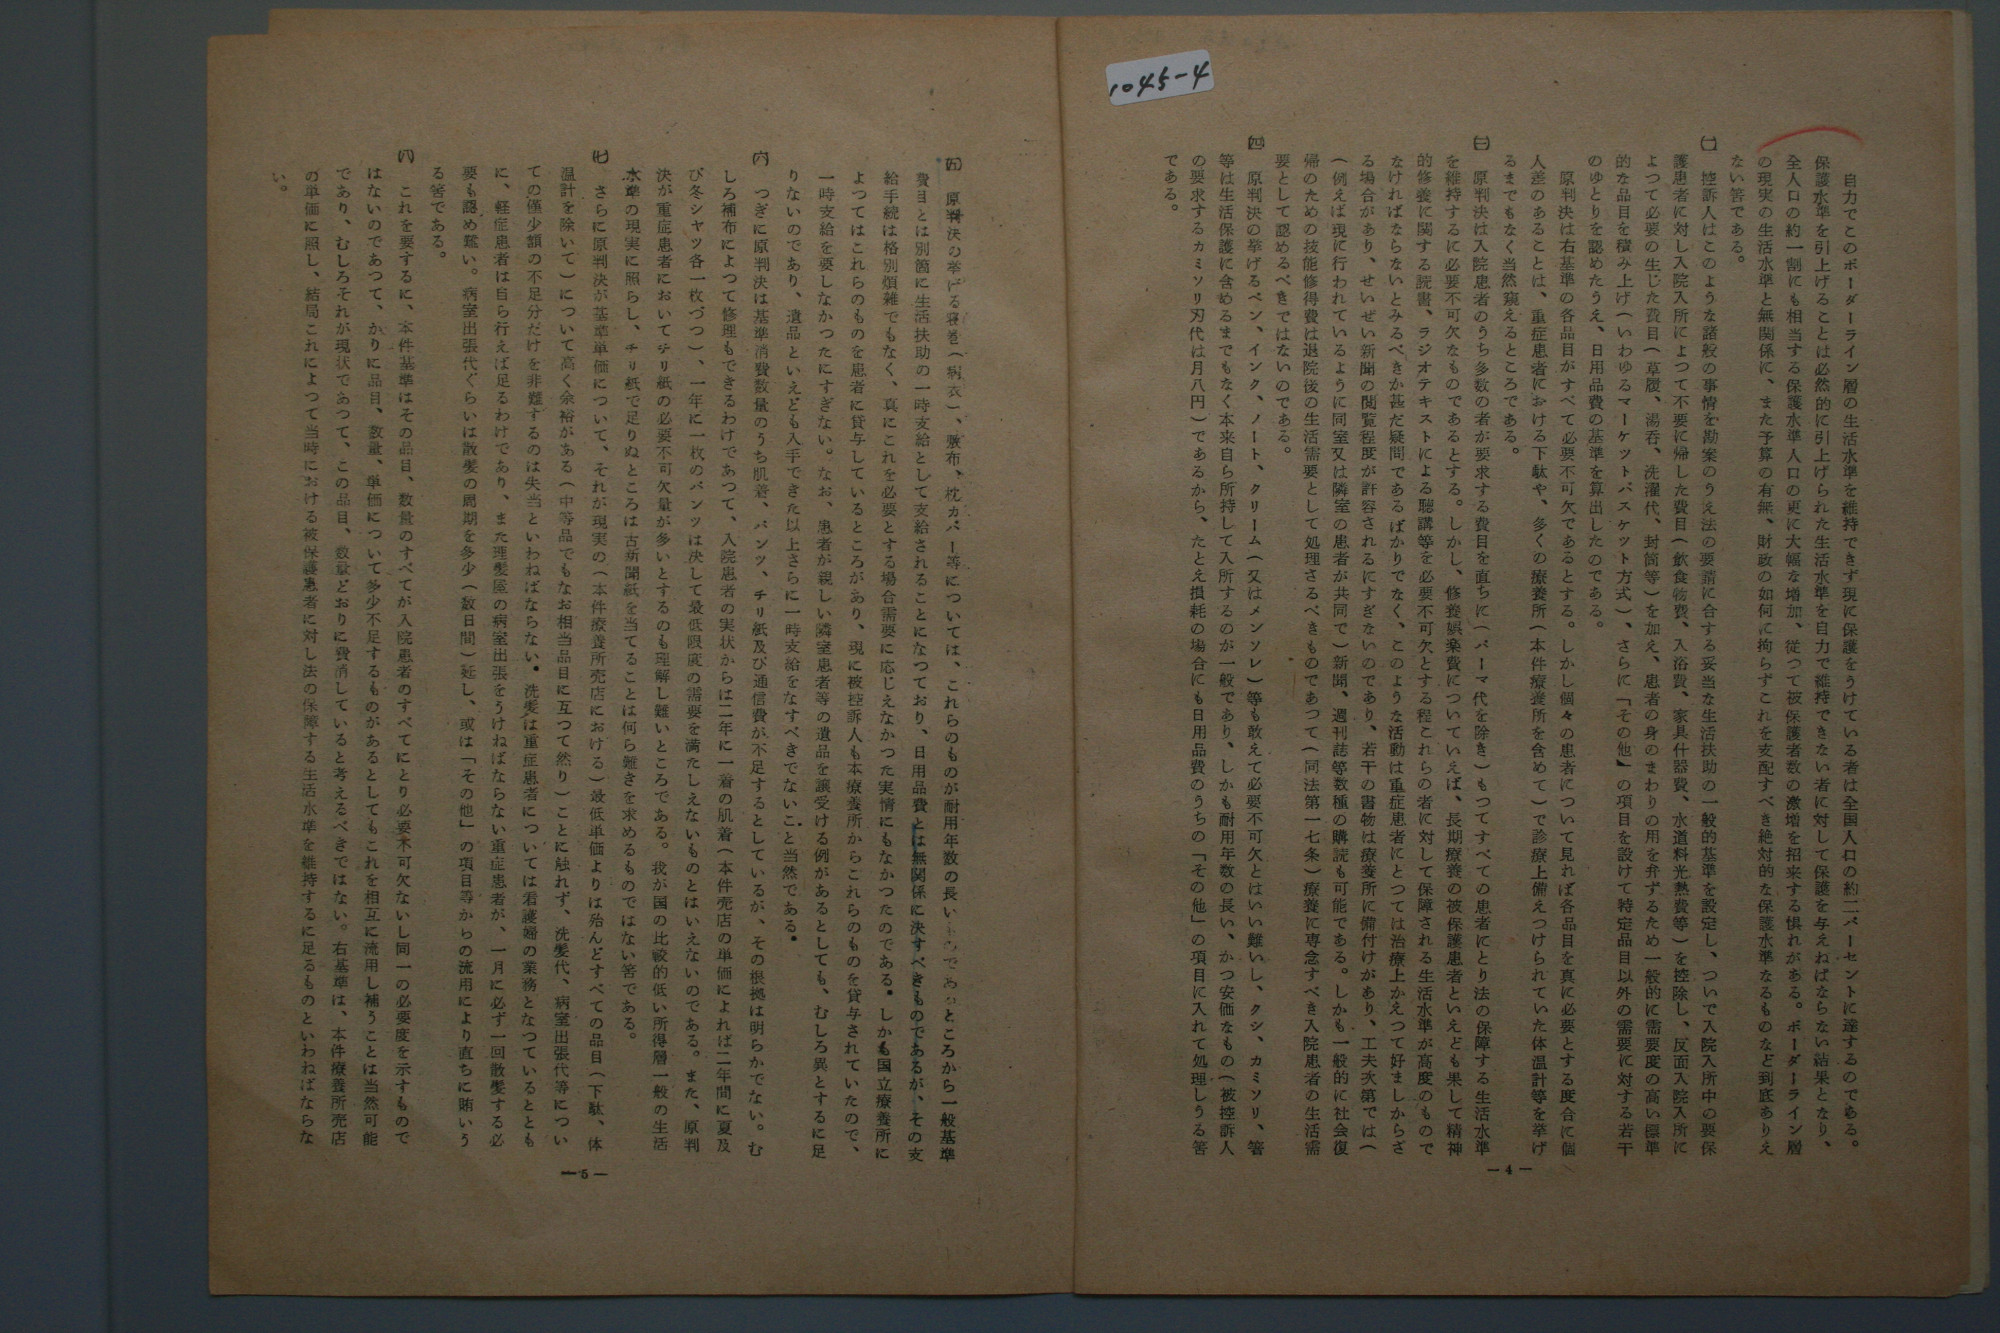 1045-4
自力でこのボーダーライン層の生活水準を維持できず現に保護をうけている者は全国人口の約二パーセントに達するのである。
保護水準を引上げることは必然的に引上げられた生活水準を自力で維持できない者に対して保護を与えねばならない結果となり、
全人口の約一割にも相当する保護水準人口の更に大幅な増加、従つて被保護者数の激増を招来する惧れがある。ボーダーライン層
の現実の生活水準と無関係に、また予算の有無、財政の如何に拘らずこれを支配すべき絶対的な保護水準なるものなど到底ありえ
ない筈である。
控訴人はこのような諸般の事情を勘案のうえ法の要請に合する妥当な生活扶助の一般的基準を設定し、ついで入院入所中の要保
護患者に対し入院入所によつて不要に帰した費目(飲食物費、入浴費、家具什器費、水道料光熱費等)を控除し、反面入院入所に
よつて必要の生じた費目(草履、湯呑、洗濯代、封筒等)を加え、患者の身のまわりの用を弁ずるため一般的に需要度の高い標準
的な品目を積み上げ(いわゆるマーケットバスケット方式)、さらに「その他」の項目を設けて特定品目以外の需要に対する若干
のゆとりを認めたうえ、日用品費の基準を算出したのである。
原判決は右基準の各品目がすべて必要不可欠であるとする。しかし個々の患者について見れば各品目を真に必要とする度合に個
人差のあることは、重症患者における下駄や、多くの療養所(本件療養所を含めて)で診療上備えつけられていた体温計等を挙げ
るまでもなく当然窺えるところである。
(三) 原判決は入院患者のうち多数の者が要求する費目を直ちに(パーマ代を除き)もつてすべての患者にとり法の保障する生活水準
を維持するに必要不可欠なものであるとする。しかし、修養娯楽費についていえば、長期療養の被保護患者といえども果して精神
的修養に関する読書、ラジオテキストによる聴講等を必要不可欠とする程これらの者に対して保障される生活水準が高度のもので
なければならないとみるべきか甚だ疑問であるばかりでなく、このような活動は重症患者にとつては治療上かえつて好ましからざ
る場合があり、せいぜい新聞の閲覧程度が許容されるにすぎないのであり、若干の書物は療養所に備付けがあり、工夫次第では(
(例えば現に行われているように同室又は隣室の患者が共同で)新聞、週刊誌等数種の購読も可能である。しかも一般的に社会復
帰のための技能修得費は退院後の生活需要として処理さるべきものであつて(同法第一七条)療養に専念すべき入院患者の生活需
要として認めるべきではないのである。
(四) 原判決の挙げるペン、インク、ノート、クリーム(又はメンソレ)等も敢えて必要不可欠とはいい難いし、クシ、カミソリ、箸
等は生活保護に含めるまでもなく本来自ら所持して入所するのが一般であり、しかも耐用年数の長い、かつ安価なもの(被控訴人
の要求するカミソリ刃代は月八円)であるから、たとえ損耗の場合にも日用品費のうちの「その他」の項目に入れて処理しうる筈
である。
—4—
(五) 原判決の挙げる寝巻(病衣)、敷布、枕カバー等については、これらのものが耐用年数の長いものであるところから一般基準
費目とは別箇に生活扶助の一時支給として支給されることになつており、日用品費とは無関係に決すべきものであるが、その支
給手続は格別煩雑でもなく、真にこれを必要とする場合需要に応じえなかつた実情にもなかつたのである。しかも国立療養所に
よつてはこれらのものを患者に貸与しているところがあり、現に被控訴人も本療養所からこれらのものを貸与されていたので、
一時支給を要しなかつたにすぎない。なお、患者が親しい隣室患者等の遺品を譲受ける例があるとしても、むしろ異とするに足
りないのであり、遺品といえども入手できた以上さらに一時支給をなすべきでないこと当然である。
(六) つぎに原判決は基準消費数量のうち肌着、パンツ、チリ紙及び通信費が不足するとしているが、その根拠は明らかでない。む
しろ補布によつて修理もできるわけであつて、入院患者の実状からは二年に一着の肌着(本件売店の単価によれば二年間に夏及
び冬シヤツ各一枚づつ)、一年に一枚のパンツは決して最低限度の需要を満たしえないものとはいえないのである。また、原判
決が重症患者においてチリ紙の必要不可欠量が多いとするのも理解し難いところである。我が国の比較的低い所得層一般の生活
水準の現実に照らし、チリ紙で足りぬところは古新聞紙を当てることは何ら難きを求めるものではない筈である。
(七) さらに原判決が基準単価について、それが現実の(本件療養所売店における)最低単価よりは殆んどすべての品目(下駄、体
温計を除いて)について高く余裕がある(中等品でもなお相当品目に亙つて然り)ことに触れず、洗髪代、病室出張代等につい
ての僅少額の不足分だけを非難するのは失当といわねばならない。洗髪は重症患者については看護婦の業務となつているととも
に、軽症患者は自ら行えば足るわけであり、また理髪屋の病室出張をうけねばならない重症患者が、一月に必ず一回散髪する必
要も認め難い。病室出張代ぐらいは散髪の周期を多少(数日間)延し、或は「その他」の項目等からの流用により直ちに賄いう
る筈である。
(八) これを要するに、本件基準はその品目、数量のすべてが入院患者のすべてにとり必要不可欠ないし同一の必要度を示すもので
はないのであつて、かりに品目、数量、単価について多少不足するものがあるとしてもこれを相互に流用し補うことは当然可能
であり、むしろそれが現状であつて、この品目、数量どおりに費消していると考えるべきではない。右基準は、本件療養所売店
の単価に照し、結局これによつて当時における被保護患者に対し法の保障する生活水準を維持するに足るものといわねばならな
い。
—5—